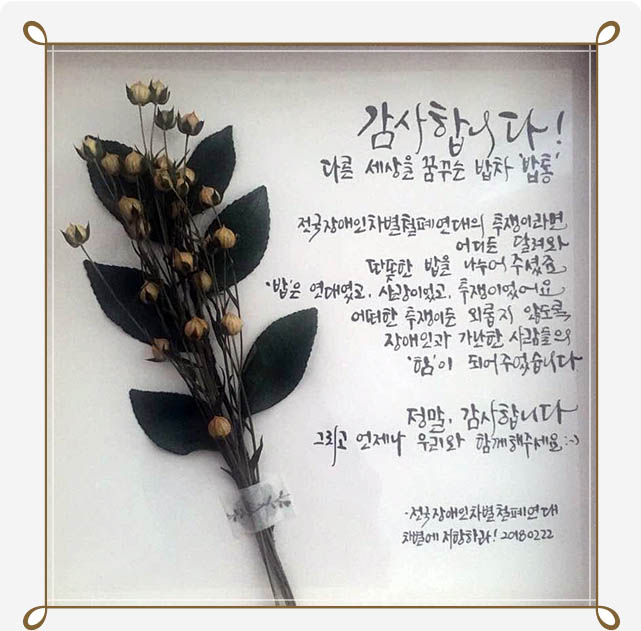 감사합니다!
다른 세상을 꿈꾸는 밥차 '밥통'
전국장애인차별철폐연대의 투쟁이라면
어디든 달려와
따뜻한 밥을 나누어 주셨죠
'밥'은 연대였고, 사랑이었고, 투쟁이었어요
어떠한 투쟁이든 외롭지 않도록
장애인과 가난한 사람들의
'힘'이 되어주었습니다
정말, 감사합니다
그리고 언제나 우리와 함께해주세요:-)
-전국장애인차별철폐연대
차별에 저항하라! 20180222